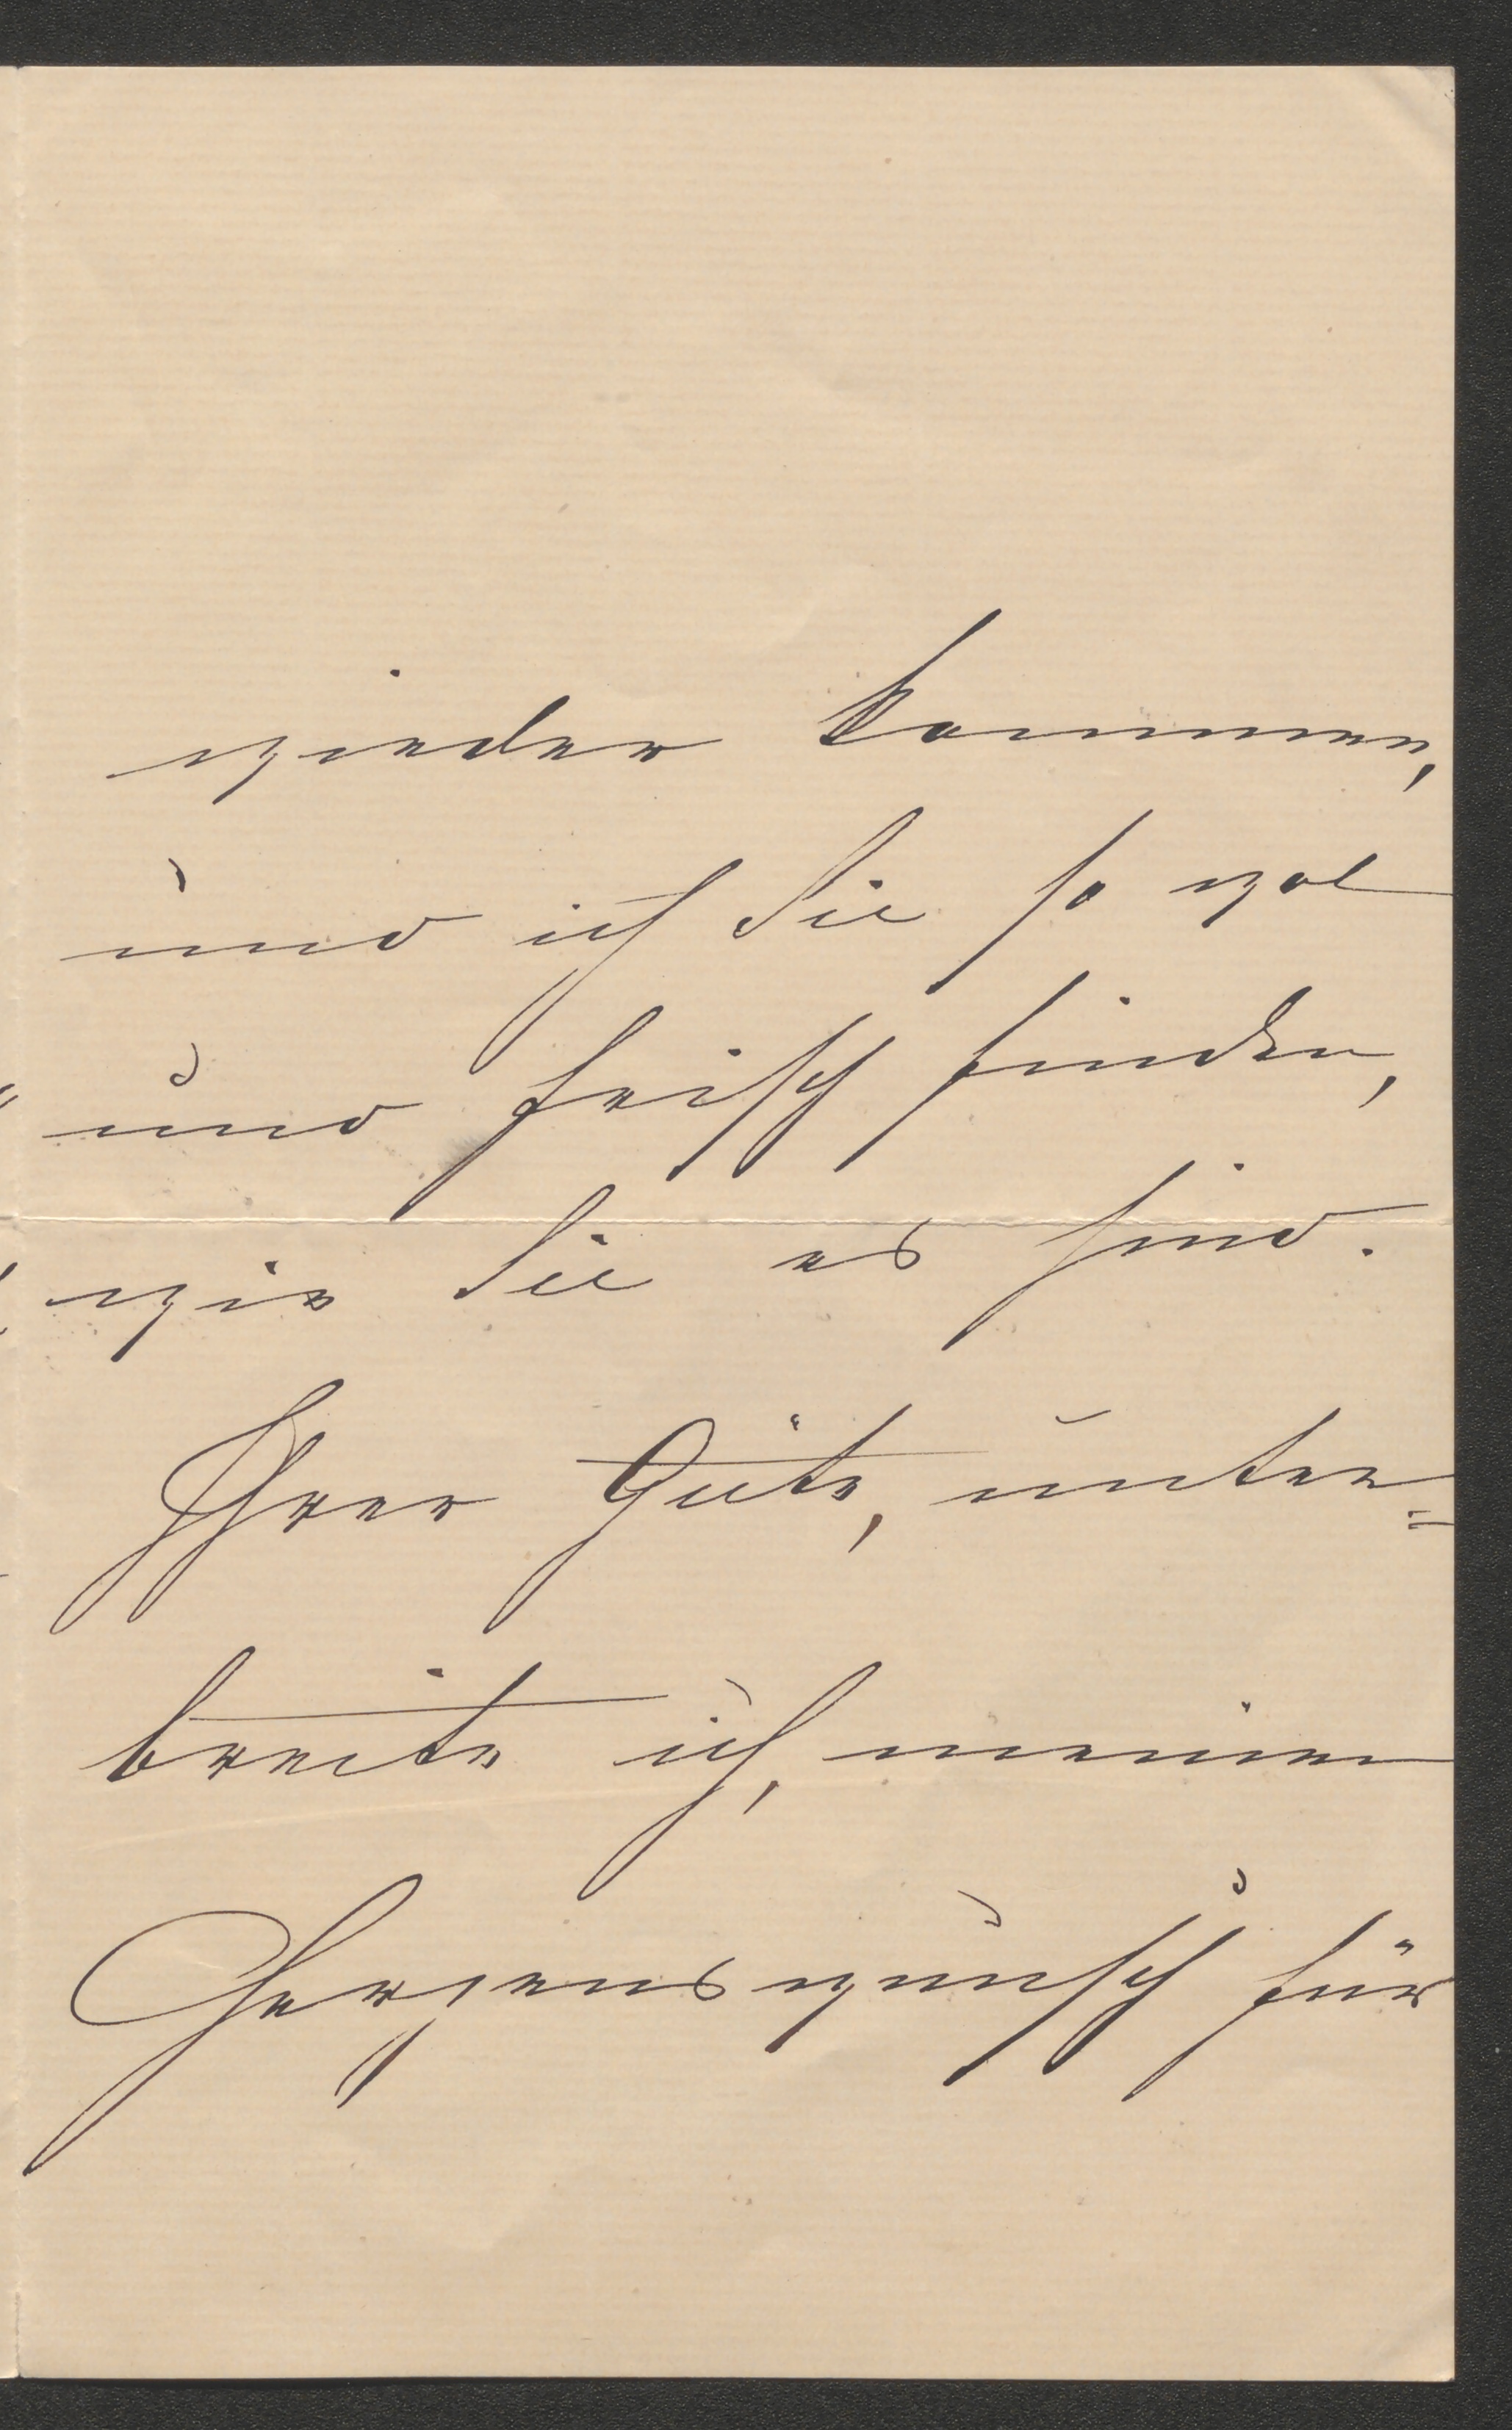 wieder kommen,
und ich Sie so wol
und frisch finden,
wie Sie es sind.
Ihrer Güte, unter=
breite ich, meinen
Herzenswunsch für